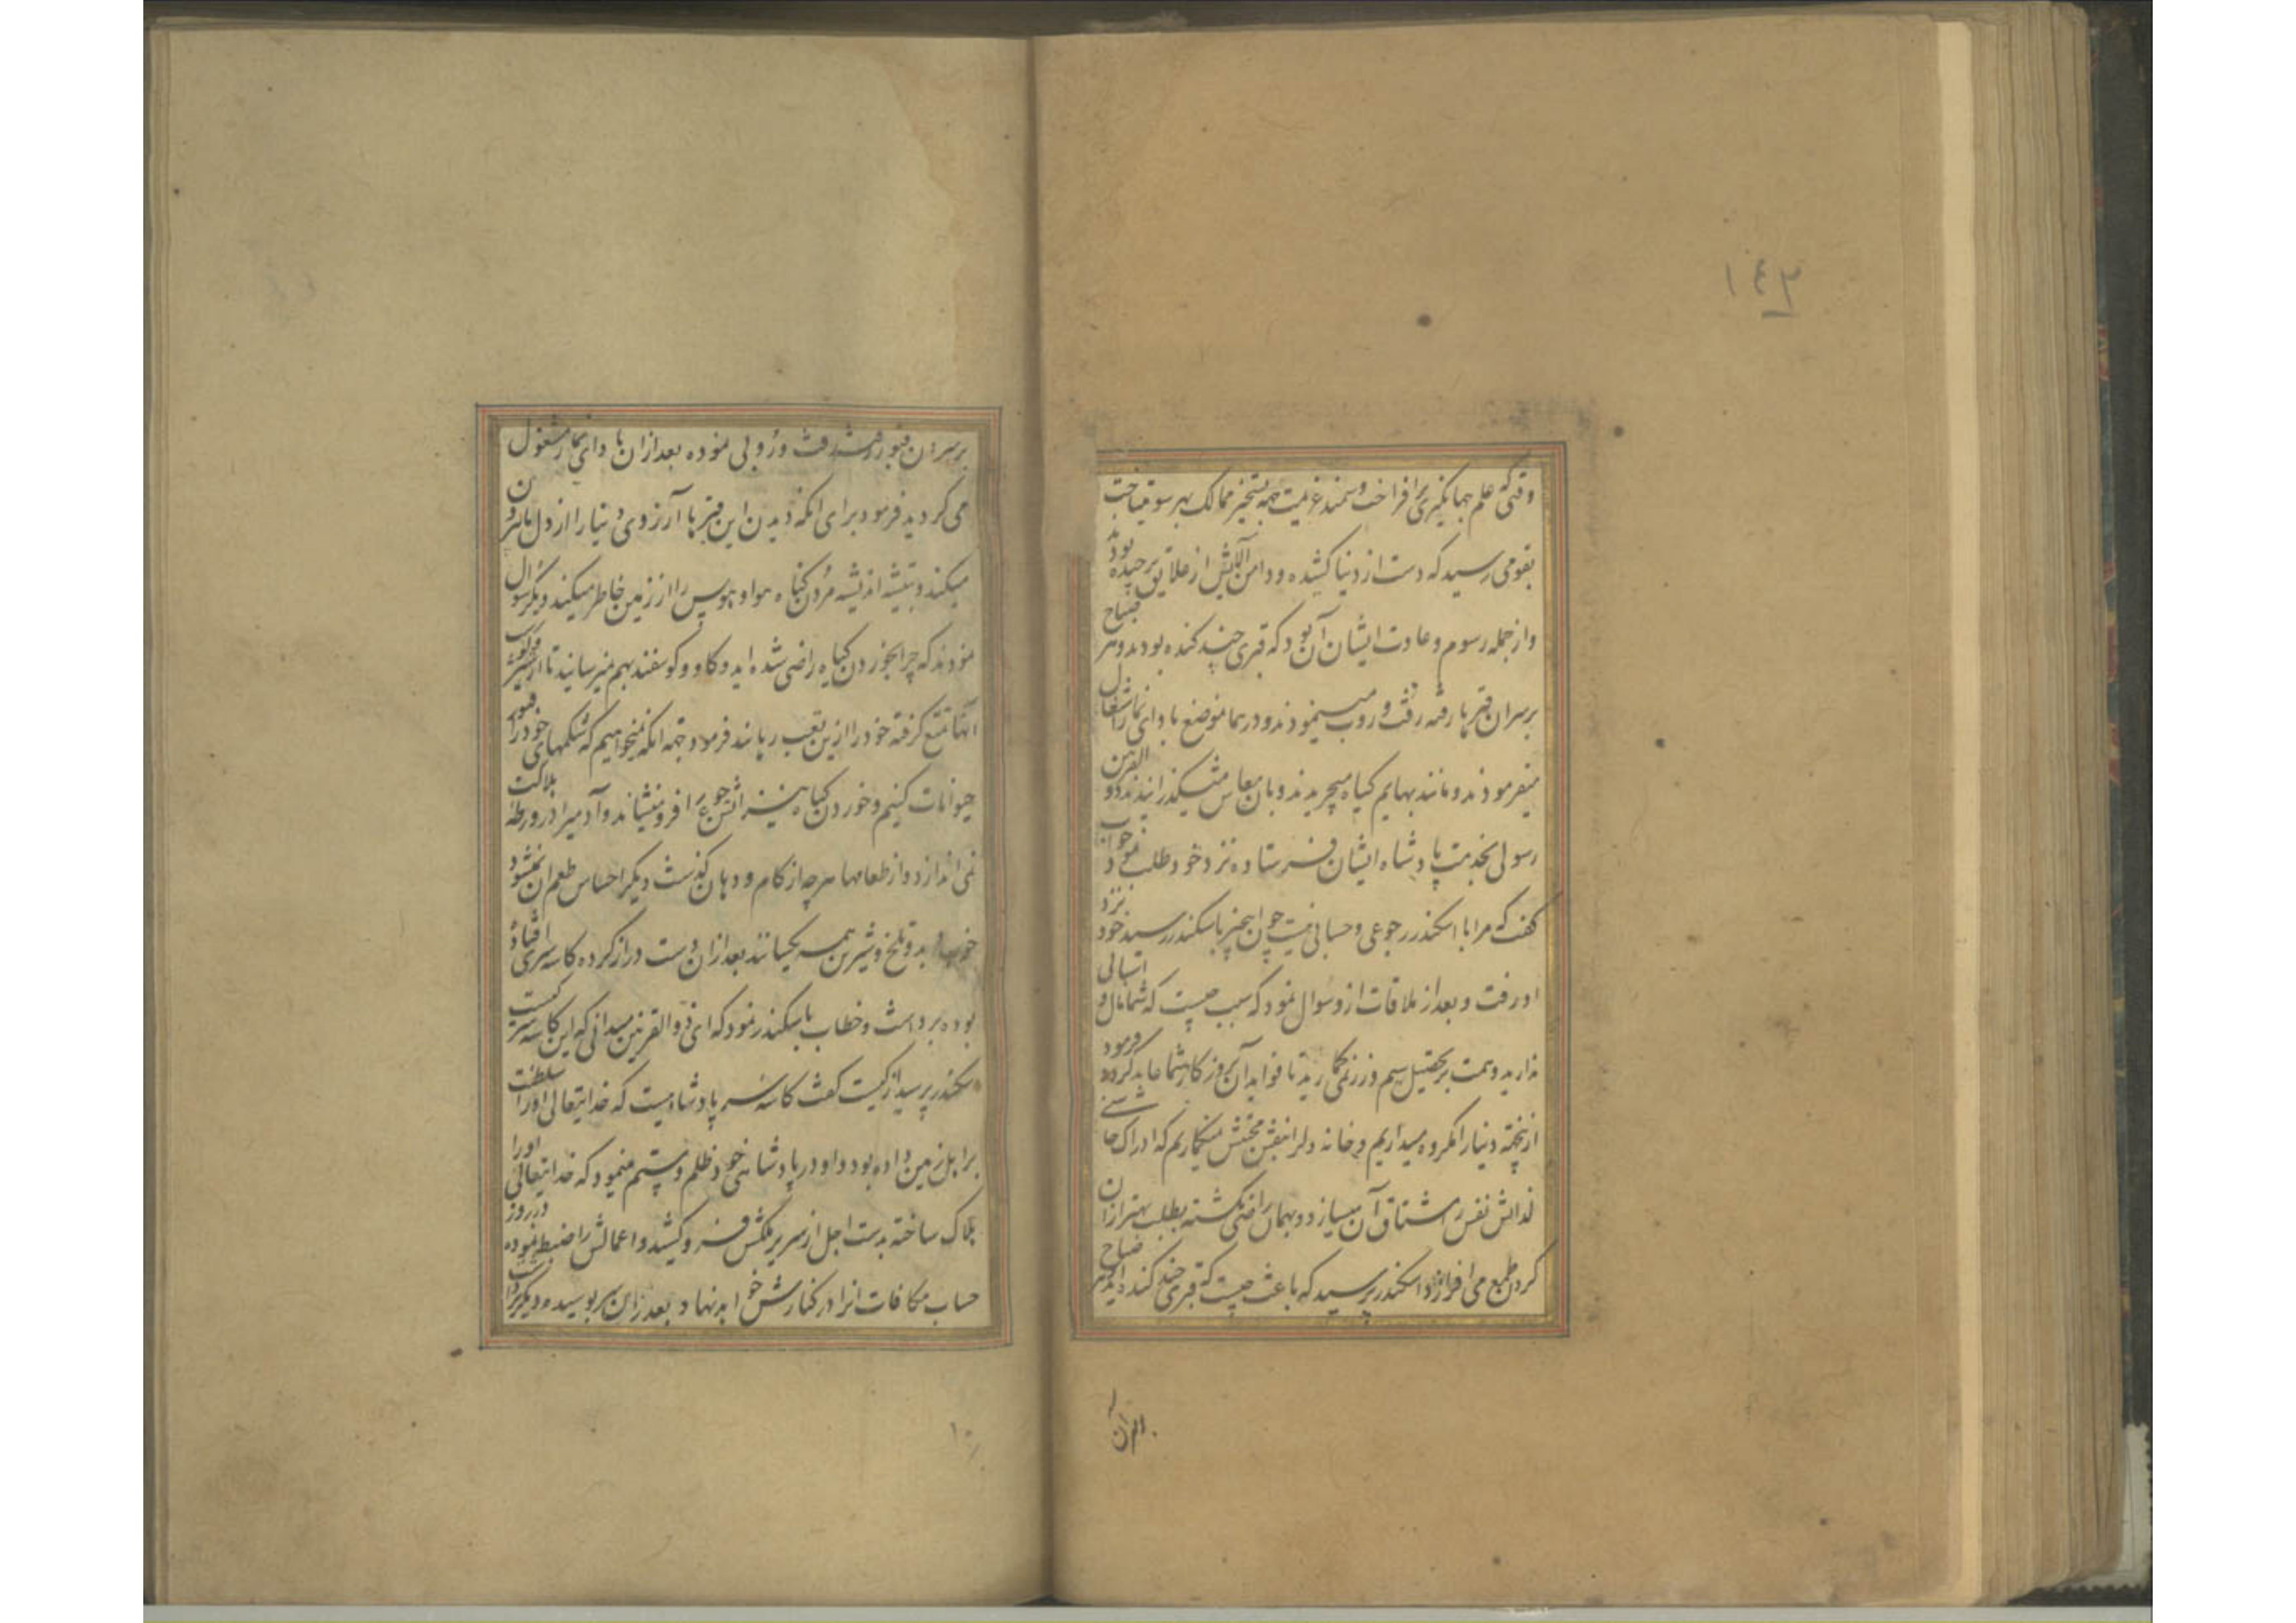 ۱۴۳
وقتی که علم جهانگیری برافراخت و سمند عزیمت بجهة تسخیر ممالک بهر سو میتاخت
بقومی رسید که دست از دنیا کشیده و دامن آلایش از علایق برچیده بودند
و از جمله رسوم و عادت ایشان آن بود که قبری چند کنده بودند و هر صباح
بر سر ان قبرها رفته رفت و روب مینمودند و در همان موضع بادای نماز اشتغال
میفرمودند و مانند بهایم کیاه میچریدند و بان معاش میکذرانیدند ذو القرنین
رسولی بخدمت پادشاه ایشان فرستاده نزد خود طلب نمود جواب
کفت که مرا با اسکندر رجوعی و حسابی نیست چون این خبر باسکندر رسید خود نزد
او رفت و بعد از ملاقات از و سوال نمود که سبب چیست که شما مال و اسبابی
ندارید و همت بر تحصیل سیم و زر نمیکمارید تا فواید آن بروزکار شما عاید کردد فرمود
ازینجهة دنیا را مکروه میداریم و خانه دل را بنقش محبتش نمینکاریم که ادراک چاشنی
لذاتش نفس را مشتاق آن میسازد و بهمان راضی نکشته بطلب بهتر از ان
کردن طمع می افرازد اسکندر پرسید که باعث چیست که قبری چند کنده اید و هر صباح
بر سر ان
بر سر ان قبور رفته رفت و روبی نموده بعد از ان بادای نماز مشغول
می کردید فرمود برای انکه دیدن این قبرها آرزوی دنیا را از دل ما بیرون
میکند و بتیشه اندیشه مردن کیاه هوا و هوس را از زمین خاطر میکند دیکر سوال
نمودند که چرا بخوردن کیاه راضی شده اید و کاو و کوسفند بهم نمیرسانید تا از شیر و کوشت
آنها تمتع کرفته خود را ازین تعب رهانند فرمود بجهة انکه نمیخواهیم که شکمهای خود را قبور
حیوانات کنیم و خوردن کیاه نیز اتش جوع را فرو مینشاند و آدمیرا در ورطه هلاکت
نمی اندازد و از طعامها هر چه از کام و دهان کذشت دیکر احساس طعم ان نمیشود
خوب و بد و تلخ و شیرین همه یکسانند بعد از ان دست دراز کرده کاسه سری افتاده
بوده برداشت و خطاب باسکندر نمود که ای ذو القرنین میدانی که این کاسه سر کیست
اسکندر پرسید از کیست کفت کاسه سر پادشاهیست که خدایتعالی او را سلطنت
بر اهل زمین داده بود و او در پادشاهی خود ظلم و ستم مینمود که خدایتعالی او را
هلاک ساخته بدست اجل از سریر ملکش فرو کشید و اعمالش را ضبط نموده در روز
حساب مکافات انرا در کنارش خواهد نهاد بعد از ان سر پوسیده دیکر برداشت